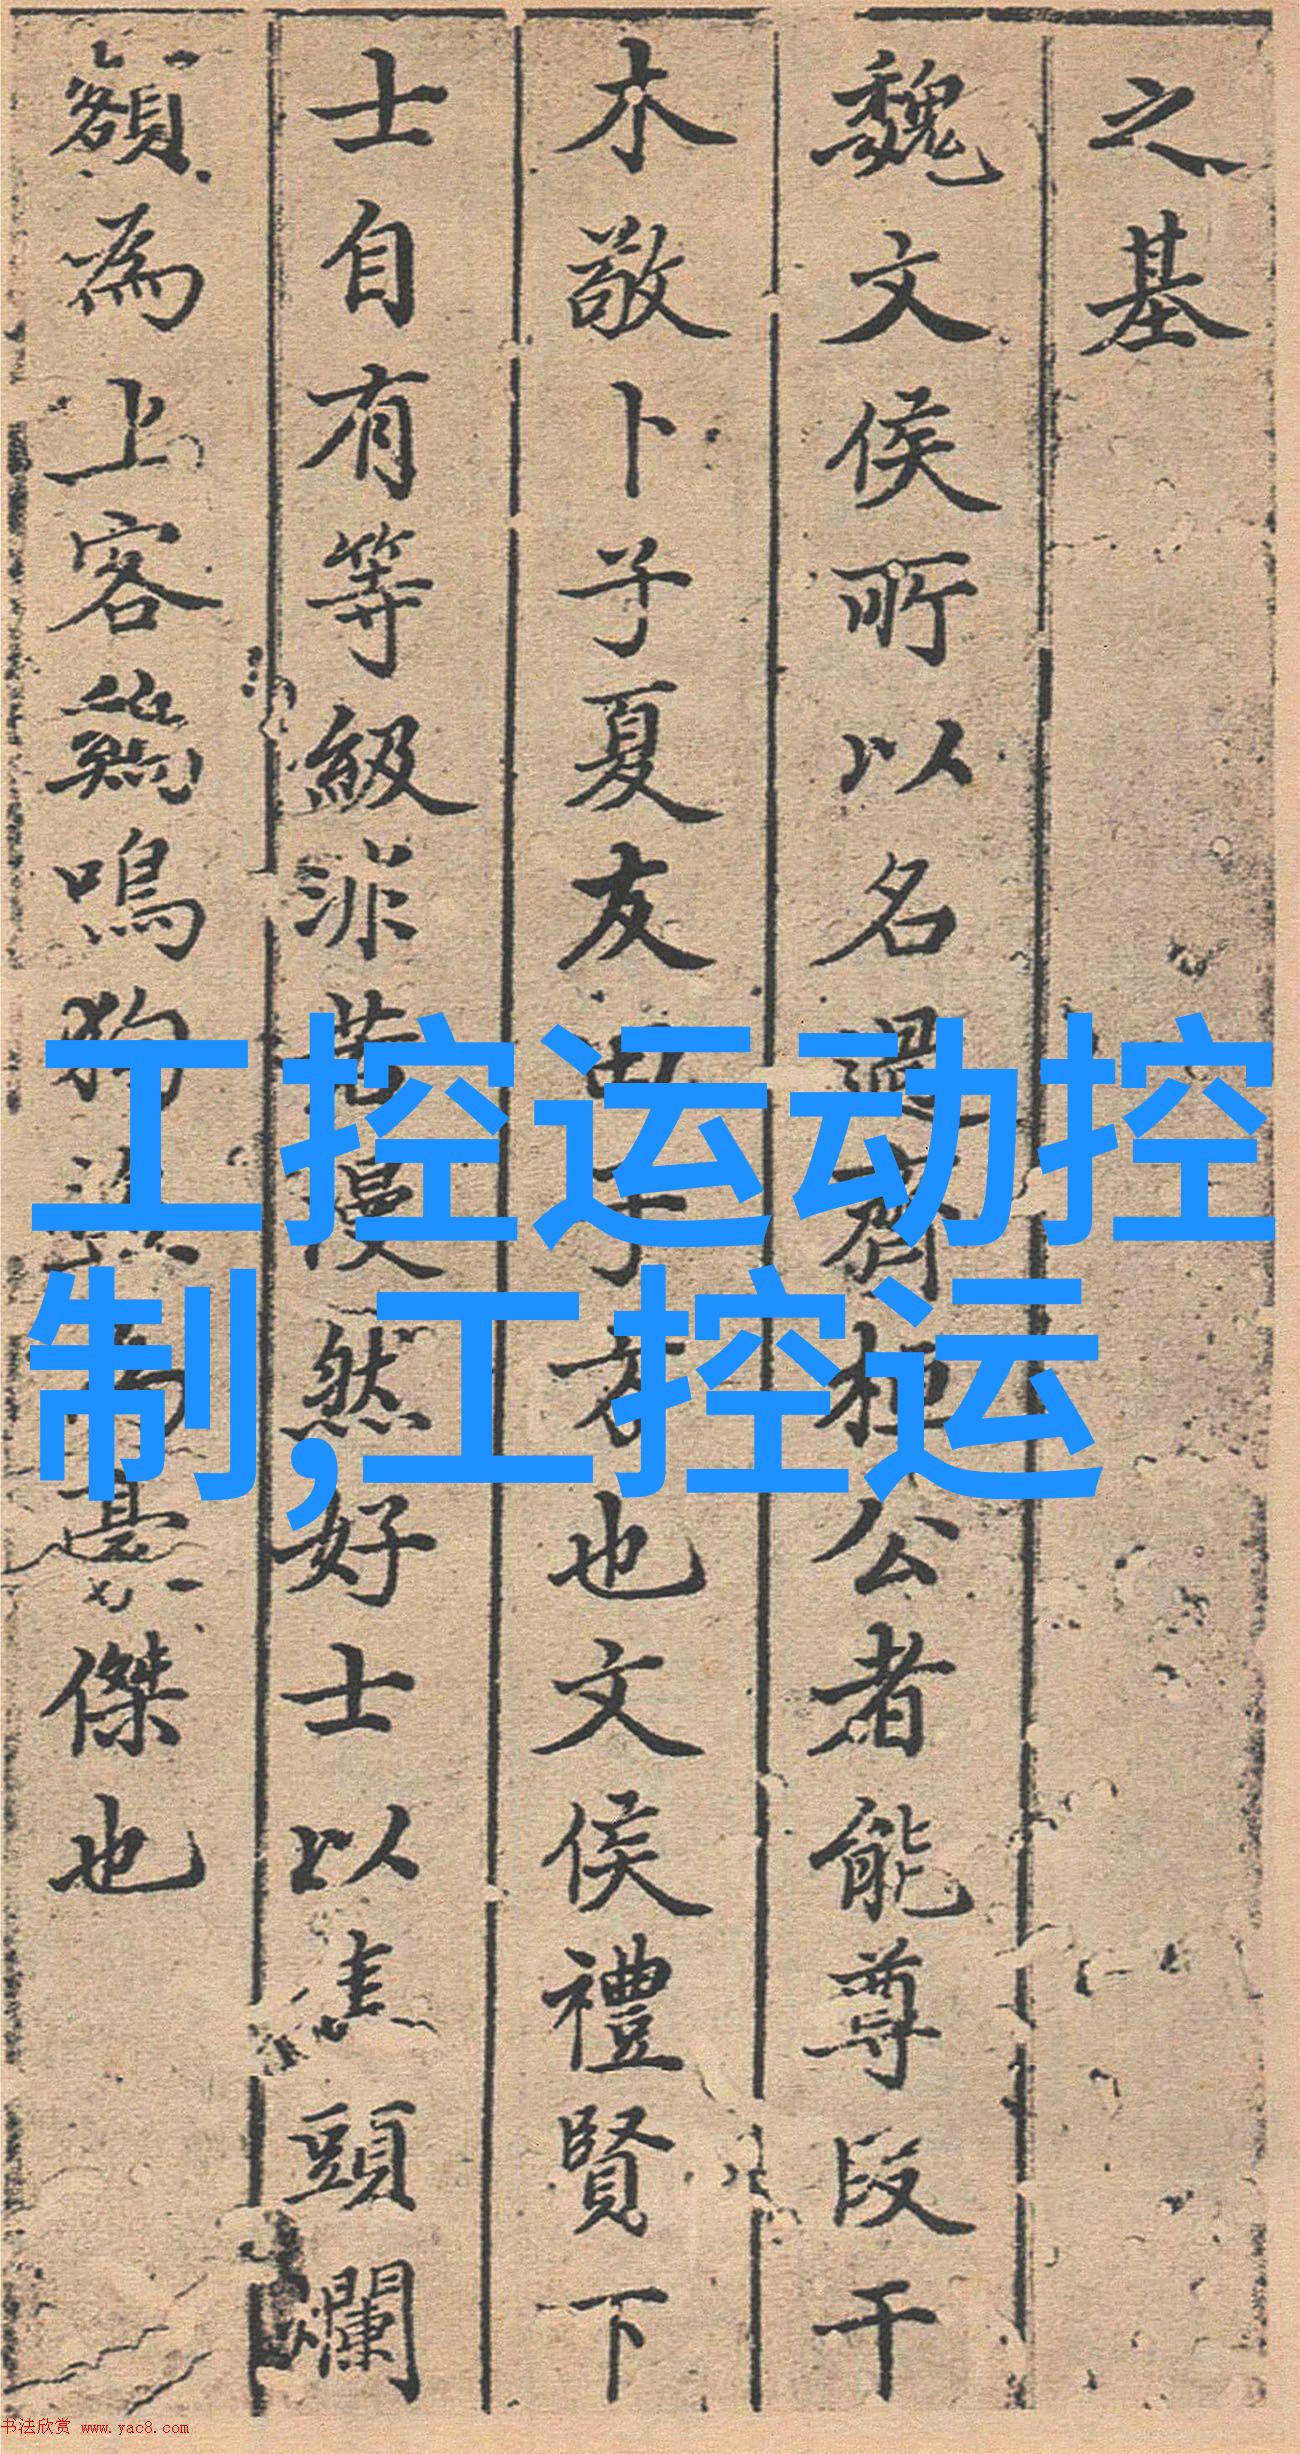 之基
魏文侯所以名過齊桓公者能尊段干
木敬卜子夏友田子方也文侯禮賢下
士自有等級非若漫然好士以焦頭爛
額為上客鷄鳴狗為豪傑也
工控运动控
制,工控运
书法欣赏 www.yac8.com